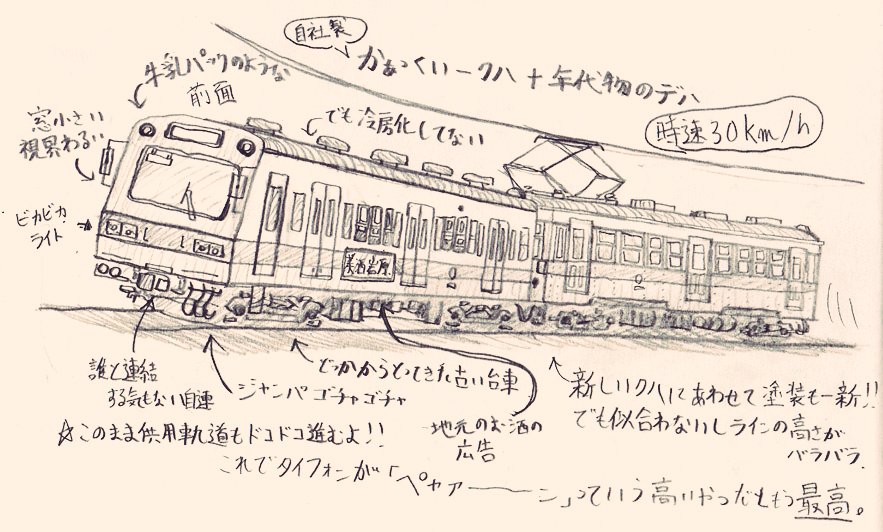 自社製
かぁっくいークハ+年代物のデハ
時速30km/h
牛乳パックのような
前面
でも冷房化してない
窓小さい
視界わるい
ピカピカ
ライト
美酒岩原
誰と連結
する気もない自連
ジャンパゴチャゴチャ
どっかからとってきた古い台車
地元のお酒の
広告
新しいクハにあわせて塗装も一新!!
でも似合わないしラインの高さが
バラバラ.
☆このまま供用軌道もドコドコ進むよ!!
これでタイフォンが「ペャァーーーン」っていう高いやつだともう最高。